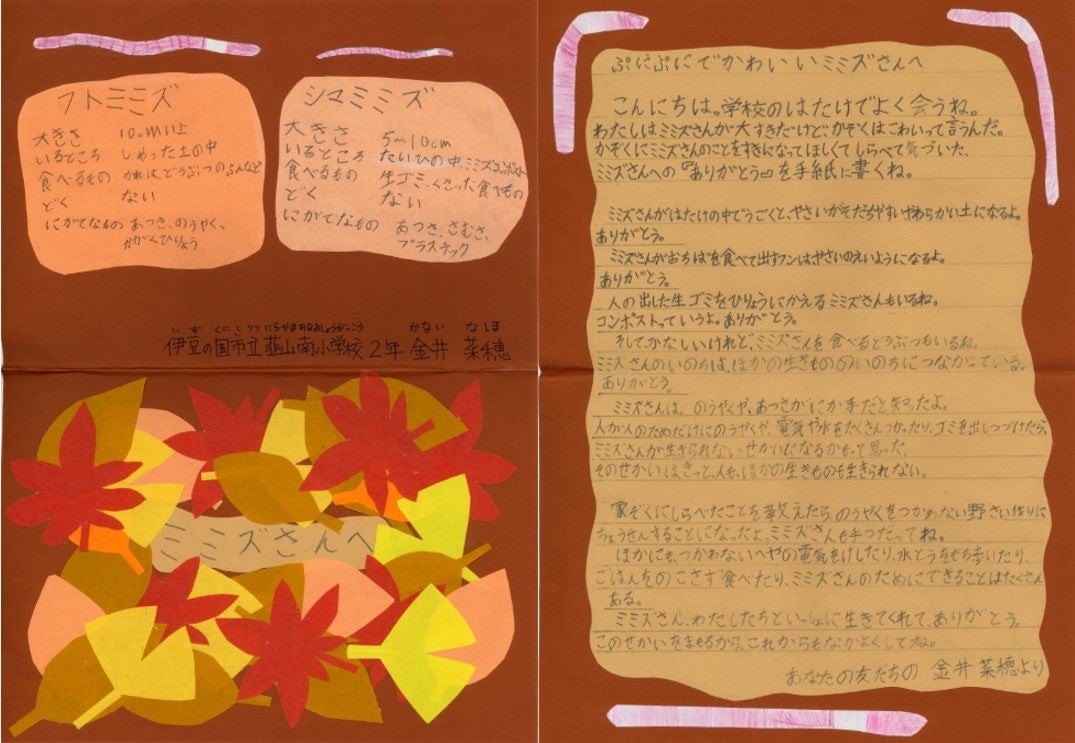 フトミミズ
大きさ 10cm以上
いるところ しめった土の中
食べるもの かれは、どうぶつのふんなど
どく ない
にがてなもの あつさ、のうやく、
かがくひりょう
シマミミズ
大きさ 5〜10cm
いるところ たいひの中、ミミズコンポスト
食べるもの 生ゴミ、くさった食べもの
どく ない
にがてなもの あつさ、さむさ、
プラスチック
いず くにしりつ にらやまみなみしょうがっこう かない なほ
伊豆の国市立韮山南小学校2年 金井 菜穂
ミミズさんへ
ぷにぷにでかわいいミミズさんへ
こんにちは。学校のはたけでよく会うね。
わたしはミミズさんが大すきだけど、かぞくはこわいって言うんだ。
かぞくにミミズさんのことをすきになってほしくてしらべて気づいた、
ミミズさんへの『ありがとう』を手紙に書くね。
ミミズさんがはたけの中でうごくと、やさいがそだちやすいやわらかい土になるよ。
ありがとう。
ミミズさんがおちばを食べて出すフンはやさいのえいようになるよ。
ありがとう。
人の出した生ゴミをひりょうにかえるミミズさんもいるね。
コンポストっていうよ。ありがとう。
そして、かなしいけれど、ミミズさんを食べるどうぶつもいるね。
ミミズさんのいのちは、ほかの生きもののいのちにつながっている。
ありがとう。
ミミズさんは、のうやくや、あつさがにが手だと知ったよ。
人が人のためだけにのうやくや、電気や水をたくさんつかったり、ゴミを出しつづけたら、
ミミズさんが生きられないせかいになるかもって思った。
そのせかいはきっと、人も、ほかの生きものも生きられない。
家ぞくにしらべたことを教えたら、のうやくをつかわない野さい作りに
ちょうせんすることになったよ。ミミズさんも手つだってね。
ほかにも、つかわないへやの電気をけしたり、水とうをもち歩いたり、
ごはんをのこさず食べたり、ミミズさんのためにできることはたくさん
ある。
ミミズさん、わたしたちといっしょに生きてくれて、ありがとう。
このせかいをまもるから、これからもなかよくしてね。
あなたの友だちの 金井 菜穂より